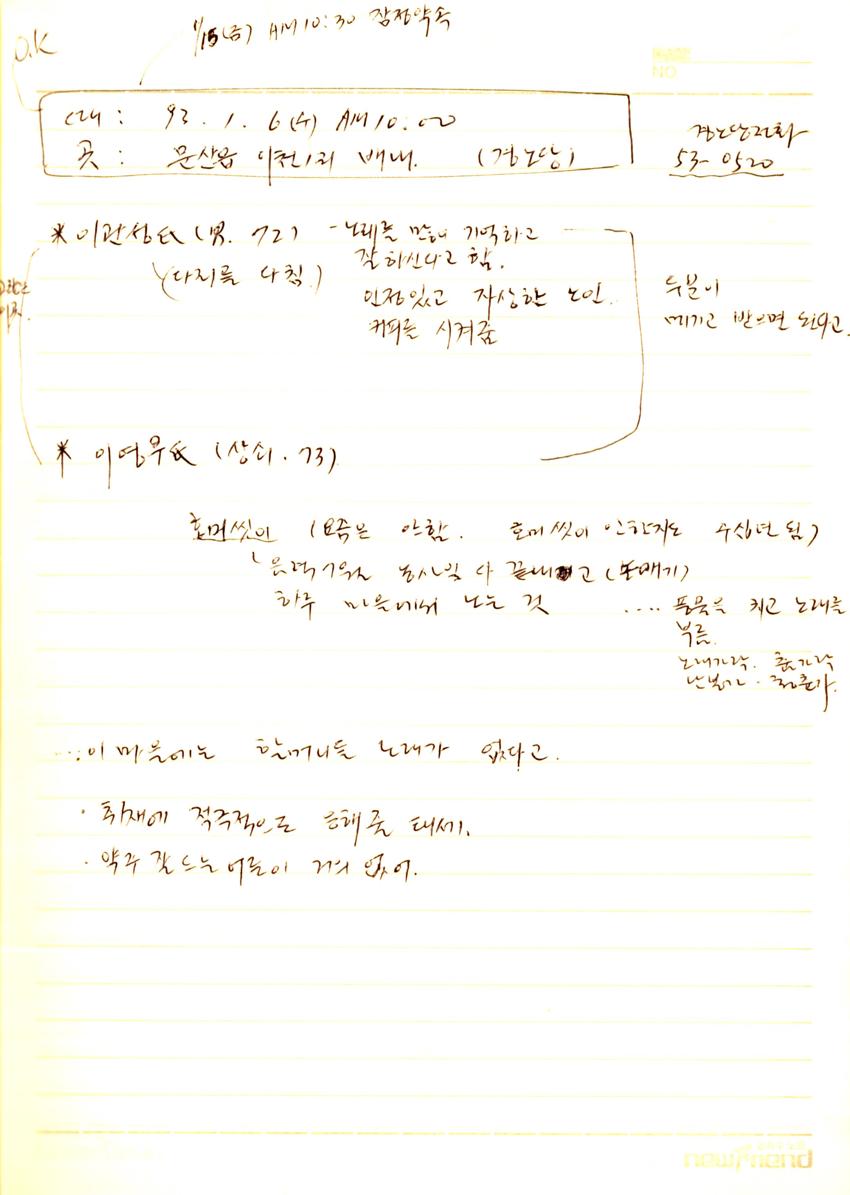 O.K
1/15(금) AM 10:30 잠정약속
NO
때 : 93. 1. 6(수) AM 10:00
곳 : 문산읍 이천1리 배내. (경노당)
경노당전화
53-0520
* 이관성氏 (男. 72) - 노래를 많이 기억하고
잘하신다고 함.
(다리를 다침.)
인정있고 자상한 노인.
커피를 시켜줌
두분이
메기고 받으면 된다고.
* 이영무氏 (상쇠. 73)
호미씻이 (요즘은 안함. 호미씻이 안한지도 수십년 됨)
농사일 다 끝내고 (논매기)
하루 마을에서 노는 것 .... 풍물을 치고 노래를
부름.
노래가락. 창부가락
난봉가.
...: 이 마을에는 할머니들 노래가 없다고.
· 취재에 적극적으로 응해줄 태세.
· 약주 잘 드는 어른이 거의 없어.
newfriend